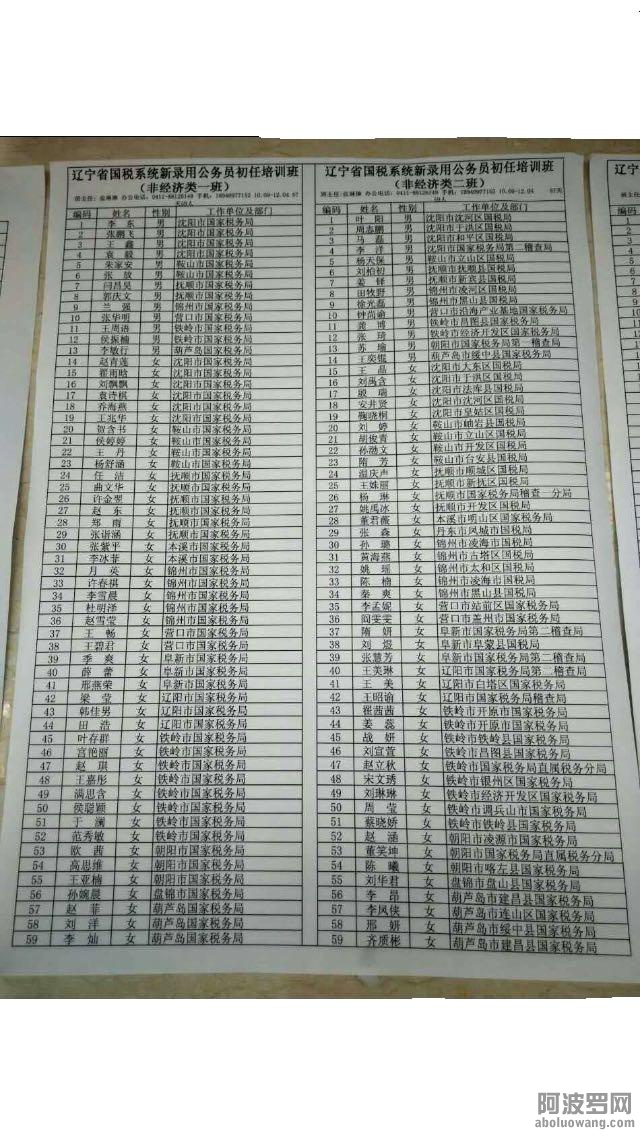 辽宁省国税系统新录用公务员初任培训班
（非经济类一班）
班主任: 办公电话: 手机: 10.09-12.04 57
天59人
编码 姓名 性别 工作单位及部门
1 李东 男 沈阳市国家税务局
2 张鹏飞 男 沈阳市国家税务局
3 王鑫 男 沈阳市国家税务局
4 袁毅 男 沈阳市国家税务局
5 朱家安 男 鞍山市国家税务局
6 张放 男 鞍山市国家税务局
7 闫昌昊 男 抚顺市国家税务局
8 郭庆文 男 抚顺市国家税务局
9 兰强 男 锦州市国家税务局
10 张华明 男 营口市国家税务局
11 王周语 男 铁岭市国家税务局
12 侯振楠 男 铁岭市国家税务局
13 李敏行 男 葫芦岛国家税务局
14 赵青莲 女 沈阳市国家税务局
15 翟雨晗 女 沈阳市国家税务局
16 刘飘飘 女 沈阳市国家税务局
17 袁诗棋 女 沈阳市国家税务局
18 乔海燕 女 沈阳市国家税务局
19 王兆华 女 沈阳市国家税务局
20 贺含书 女 鞍山市国家税务局
21 侯婷婷 女 鞍山市国家税务局
22 王丹 女 鞍山市国家税务局
23 杨舒涵 女 鞍山市国家税务局
24 任洁 女 抚顺市国家税务局
25 曲文华 女 抚顺市国家税务局
26 许金翌 女 抚顺市国家税务局
27 赵东 女 抚顺市国家税务局
28 郑雨 女 抚顺市国家税务局
29 张诣涵 女 抚顺市国家税务局
30 张紫平 女 本溪市国家税务局
31 李冰菲 女 本溪市国家税务局
32 月英 女 锦州市国家税务局
33 许春祺 女 锦州市国家税务局
34 李雪晨 女 锦州市国家税务局
35 杜明泽 女 锦州市国家税务局
36 赵雪莹 女 锦州市国家税务局
37 王畅 女 营口市国家税务局
38 王碧君 女 阜新市国家税务局
39 季爽 女 阜新市国家税务局
40 薛蕾 女 阜新市国家税务局
41 邢燕荣 女 阜新市国家税务局
42 梁莹 女 辽阳市国家税务局
43 韩佳男 女 辽阳市国家税务局
44 田浩 女 辽阳市国家税务局
45 叶存群 女 铁岭市国家税务局
46 宫艳丽 女 铁岭市国家税务局
47 赵琪 女 铁岭市国家税务局
48 王嘉彤 女 铁岭市国家税务局
49 满思含 女 铁岭市国家税务局
50 侯聪颖 女 铁岭市国家税务局
51 于澜 女 铁岭市国家税务局
52 范秀敏 女 铁岭市国家税务局
53 欧茜 女 朝阳市国家税务局
54 高思维 女 朝阳市国家税务局
55 王亚楠 女 朝阳市国家税务局
56 孙婉晨 女 盘锦市国家税务局
57 赵菲 女 葫芦岛国家税务局
58 刘洋 女 葫芦岛国家税务局
59 李灿 女 葫芦岛国家税务局
辽宁省国税系统新录用公务员初任培训班
（非经济类二班）
班主任: 办公电话: 手机: 10.09-12.04 57天
59人
编码 姓名 性别 工作单位及部门
1 叶阳 男 沈阳市沈河区国税局
2 周志鹏 男 沈阳市于洪区国税局
3 马磊 男 沈阳市和平区国税局
4 李洋 男 沈阳市国家税务局第二稽查局
5 杨天保 男 鞍山市立山区国税局
6 刘柏初 男 抚顺市抚顺县国税局
7 姜铎 男 抚顺市新宾县国税局
8 田牧野 男 锦州市凌河区国税局
9 徐光磊 男 锦州市黑山县国税局
10 钟尚谕 男 营口市沿海产业基地国家税务局
11 龚博 男 铁岭市昌图县国家税务局
12 张琦 男 铁岭市经济开发区国家税务局
13 苏瑜 男 朝阳市国家税务局第一稽查局
14 王奕锟 男 葫芦岛市绥中县国家税务局
15 王晶 女 沈阳市大东区国税局
16 刘禹含 女 沈阳市于洪区国税局
17 殷瑞 女 沈阳市法库县国税局
18 安井贤 女 沈阳市沈河区国税局
19 鞠晓桐 女 沈阳市皇姑区国税局
20 刘婷 女 鞍山市岫岩县国税局
21 胡俊青 女 鞍山市立山区国税局
22 孙澈文 女 鞍山市开发区国税局
23 隋芳 女 鞍山市台安县国税局
24 温庆声 女 抚顺市顺城区国税局
25 王姝丽 女 抚顺市新抚区国税局
26 杨琳 女 抚顺市国家税务局稽查 分局
27 姚禹冰 女 抚顺市开发区国税局
28 董君薇 女 本溪市明山区国家税务局
29 张森 女 丹东市凤城市国税局
30 孙璐 女 锦州市凌海市国税局
31 黄海燕 女 锦州市古塔区国税局
32 姚瑶 女 锦州市太和区国税局
33 陈楠 女 锦州市凌海市国税局
34 秦爽 女 锦州市黑山县国税局
35 李孟妮 女 营口市站前区国家税务局
36 阎雯雯 女 营口市盖州市国家税务局
37 隋妍 女 阜新市国家税务局第二稽查局
38 刘煜 女 阜新市阜蒙县国税局
39 张慧芳 女 阜新市国家税务局第二稽查局
40 王美琳 女 辽阳市国家税务局第二稽查局
41 王美 女 辽阳市白塔区国家税务局
42 王昭谕 女 辽阳市国家税务局稽查局
43 翟茜茜 女 铁岭市开原市国家税务局
44 姜蕊 女 铁岭市开原市国家税务局
45 战妍 女 铁岭市铁岭县国家税务局
46 刘宣萱 女 铁岭市昌图县国家税务局
47 赵立秋 女 铁岭市国家税务局直属税务分局
48 宋文琇 女 铁岭市银州区国家税务局
49 刘琳琳 女 铁岭市经济开发区国家税务局
50 周莹 女 铁岭市调兵山市国家税务局
51 蔡晓娇 女 铁岭市铁岭县国家税务局
52 赵涵 女 朝阳市凌源市国家税务局
53 董笑坤 女 朝阳市国家税务局直属税务分局
54 陈曦 女 朝阳市喀左县国家税务局
55 刘华君 女 盘锦市盘山县国家税务局
56 李昂 女 葫芦岛市建昌县国家税务局
57 李凤侠 女 葫芦岛市连山区国家税务局
58 邢妍 女 葫芦岛市绥中县国家税务局
59 齐质彬 女 葫芦岛市建昌县国家税务局
阿波罗网
aboluowang.com